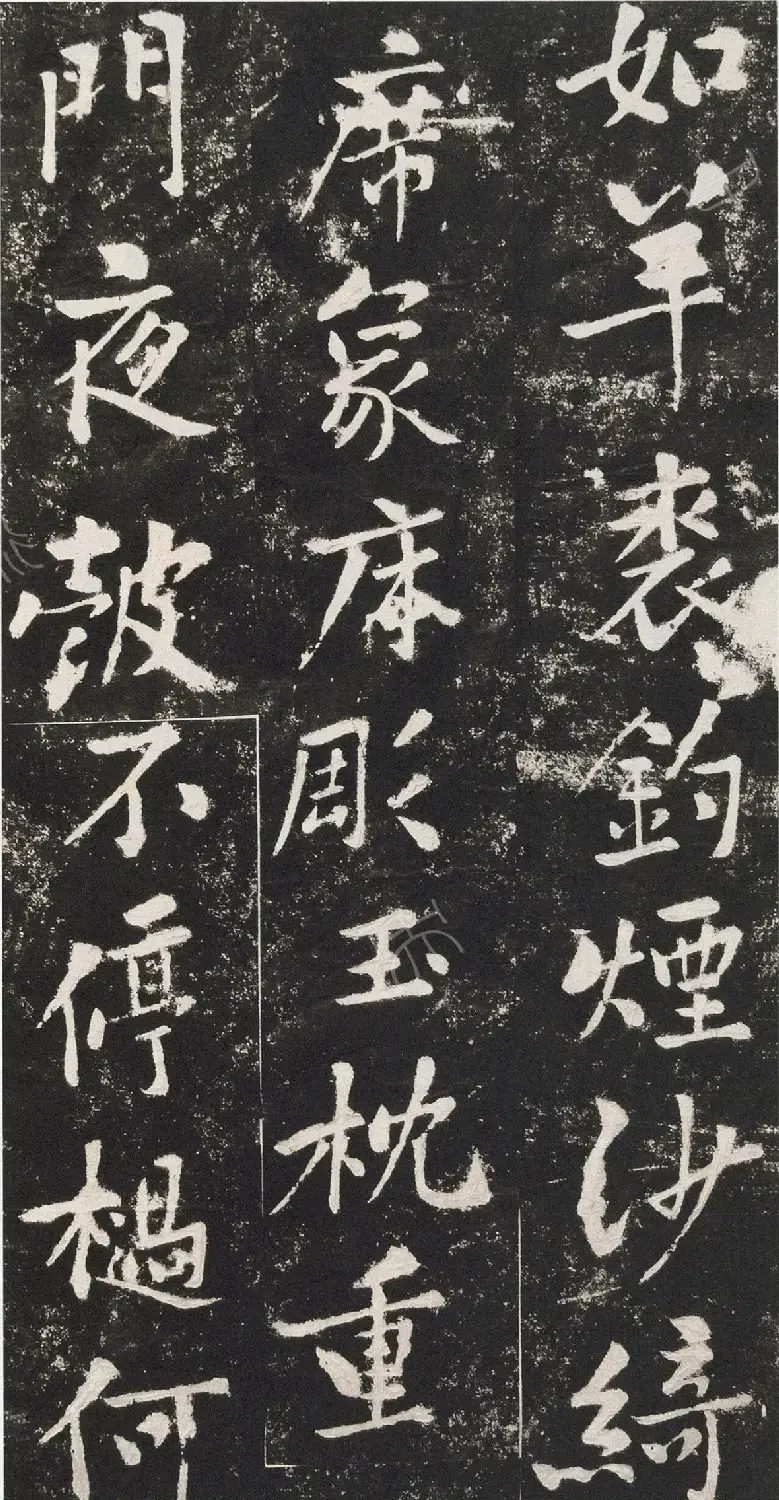 如羊裘釣煙沙綺
席象床彫玉枕重
門夜皷不停檛何